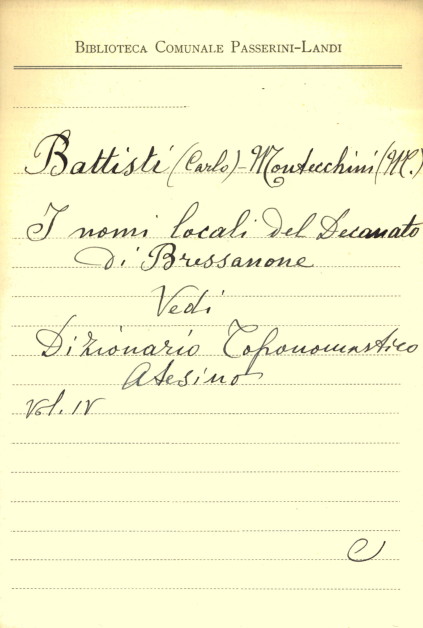 Biblioteca Comunale Passerini-Landi
Battisti (Carlo) - Montecchini (M.)
I nomi locali del Decanato
di Bressanone
Vedi
Dizionario Toponomastico
Atesino
Vol. IV
C